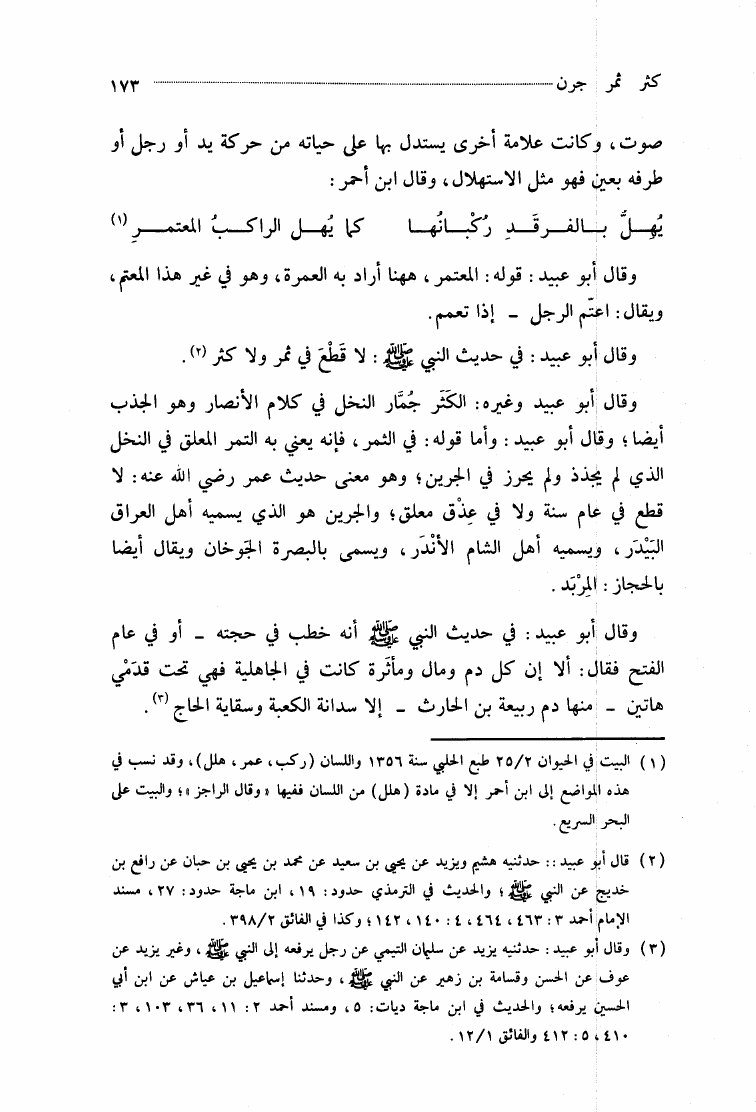 كثر ثمر جرن ١٧٣
صوت، وكانت علامة أخرى يستدل بها على حياته من حركة يد أو رجل أو
طرفه بعين فهو مثل الاستهلال، وقال ابن أحمر:
يُهِلُّ بالفرقَدِ رُكْبَانُها كما يُهل الراكبُ المعتمرِ (١)
وقال أبو عبيد: قوله: المعتمر، ههنا أراد به العمرة، وهو في غير هذا المعتم،
ويقال: اعتّم الرجل - إذا تعمم.
وقال أبو عبيد: في حديث النبي ﷺ: لا قَطْعَ في ثمر ولا كثر (٢).
وقال أبو عبيد وغيره: الكَثَر جُمَّار النخل في كلام الأنصار وهو الجذب
أيضا؛ وقال أبو عبيد: وأما قوله: في الثمر، فإنه يعني به التمر المعلق في النخل
الذي لم يجذذ ولم يحرز في الجرين؛ وهو معنى حديث عمر رضي الله عنه: لا
قطع في عام سنة ولا في عِذْق معلق؛ والجرين هو الذي يسميه أهل العراق
البَيْدَر، ويسميه أهل الشام الأنْدَر، ويسمى بالبصرة الجَوخان ويقال أيضا
بالحجاز: المِرْبَد.
وقال أبو عبيد: في حديث النبي ﷺ أنه خطب في حجته - أو في عام
الفتح فقال: ألا إن كل دم ومال ومأثَرة كانت في الجاهلية فهي تحت قدَمْي
هاتين - منها دم ربيعة بن الحارث - إلا سدانة الكعبة وسقاية الحاج (٣).
(١) البيت في الحيوان ٢٥/٢ طبع الحلبي سنة ١٣٥٦ واللسان (ركب، عمر، هلل)، وقد نسب في
هذه المواضع إلى ابن أحمر إلا في مادة (هلل) من اللسان ففيها «وقال الراجز»؛ والبيت على
البحر السريع.
(٢) قال أبو عبيد:: حدثنيه هشيم ويزيد عن يحيى بن سعيد عن محمد بن يحيى بن حبان عن رافع بن
خديج عن النبي ﷺ؛ والحديث في الترمذي حدود: ١٩، ابن ماجة حدود: ٢٧، مسند
الإمام أحمد ٣: ٤٦٣، ٤٦٤، ٤: ١٤٠، ١٤٢؛ وكذا في الفائق ٣٩٨/٢.
(٣) وقال أبو عبيد: حدثنيه يزيد عن سليمان التيمي عن رجل يرفعه إلى النبي ﷺ، وغير يزيد عن
عوف عن الحسن وقسامة بن زهير عن النبي ﷺ، وحدثنا إسماعيل بن عياش عن ابن أبي
الحسين يرفعه؛ والحديث في ابن ماجة ديات: ٥، ومسند أحمد ٢: ١١، ٣٦، ١٠٣، ٣:
٤١٠، ٥: ٤١٢ والفائق ١٢/١.